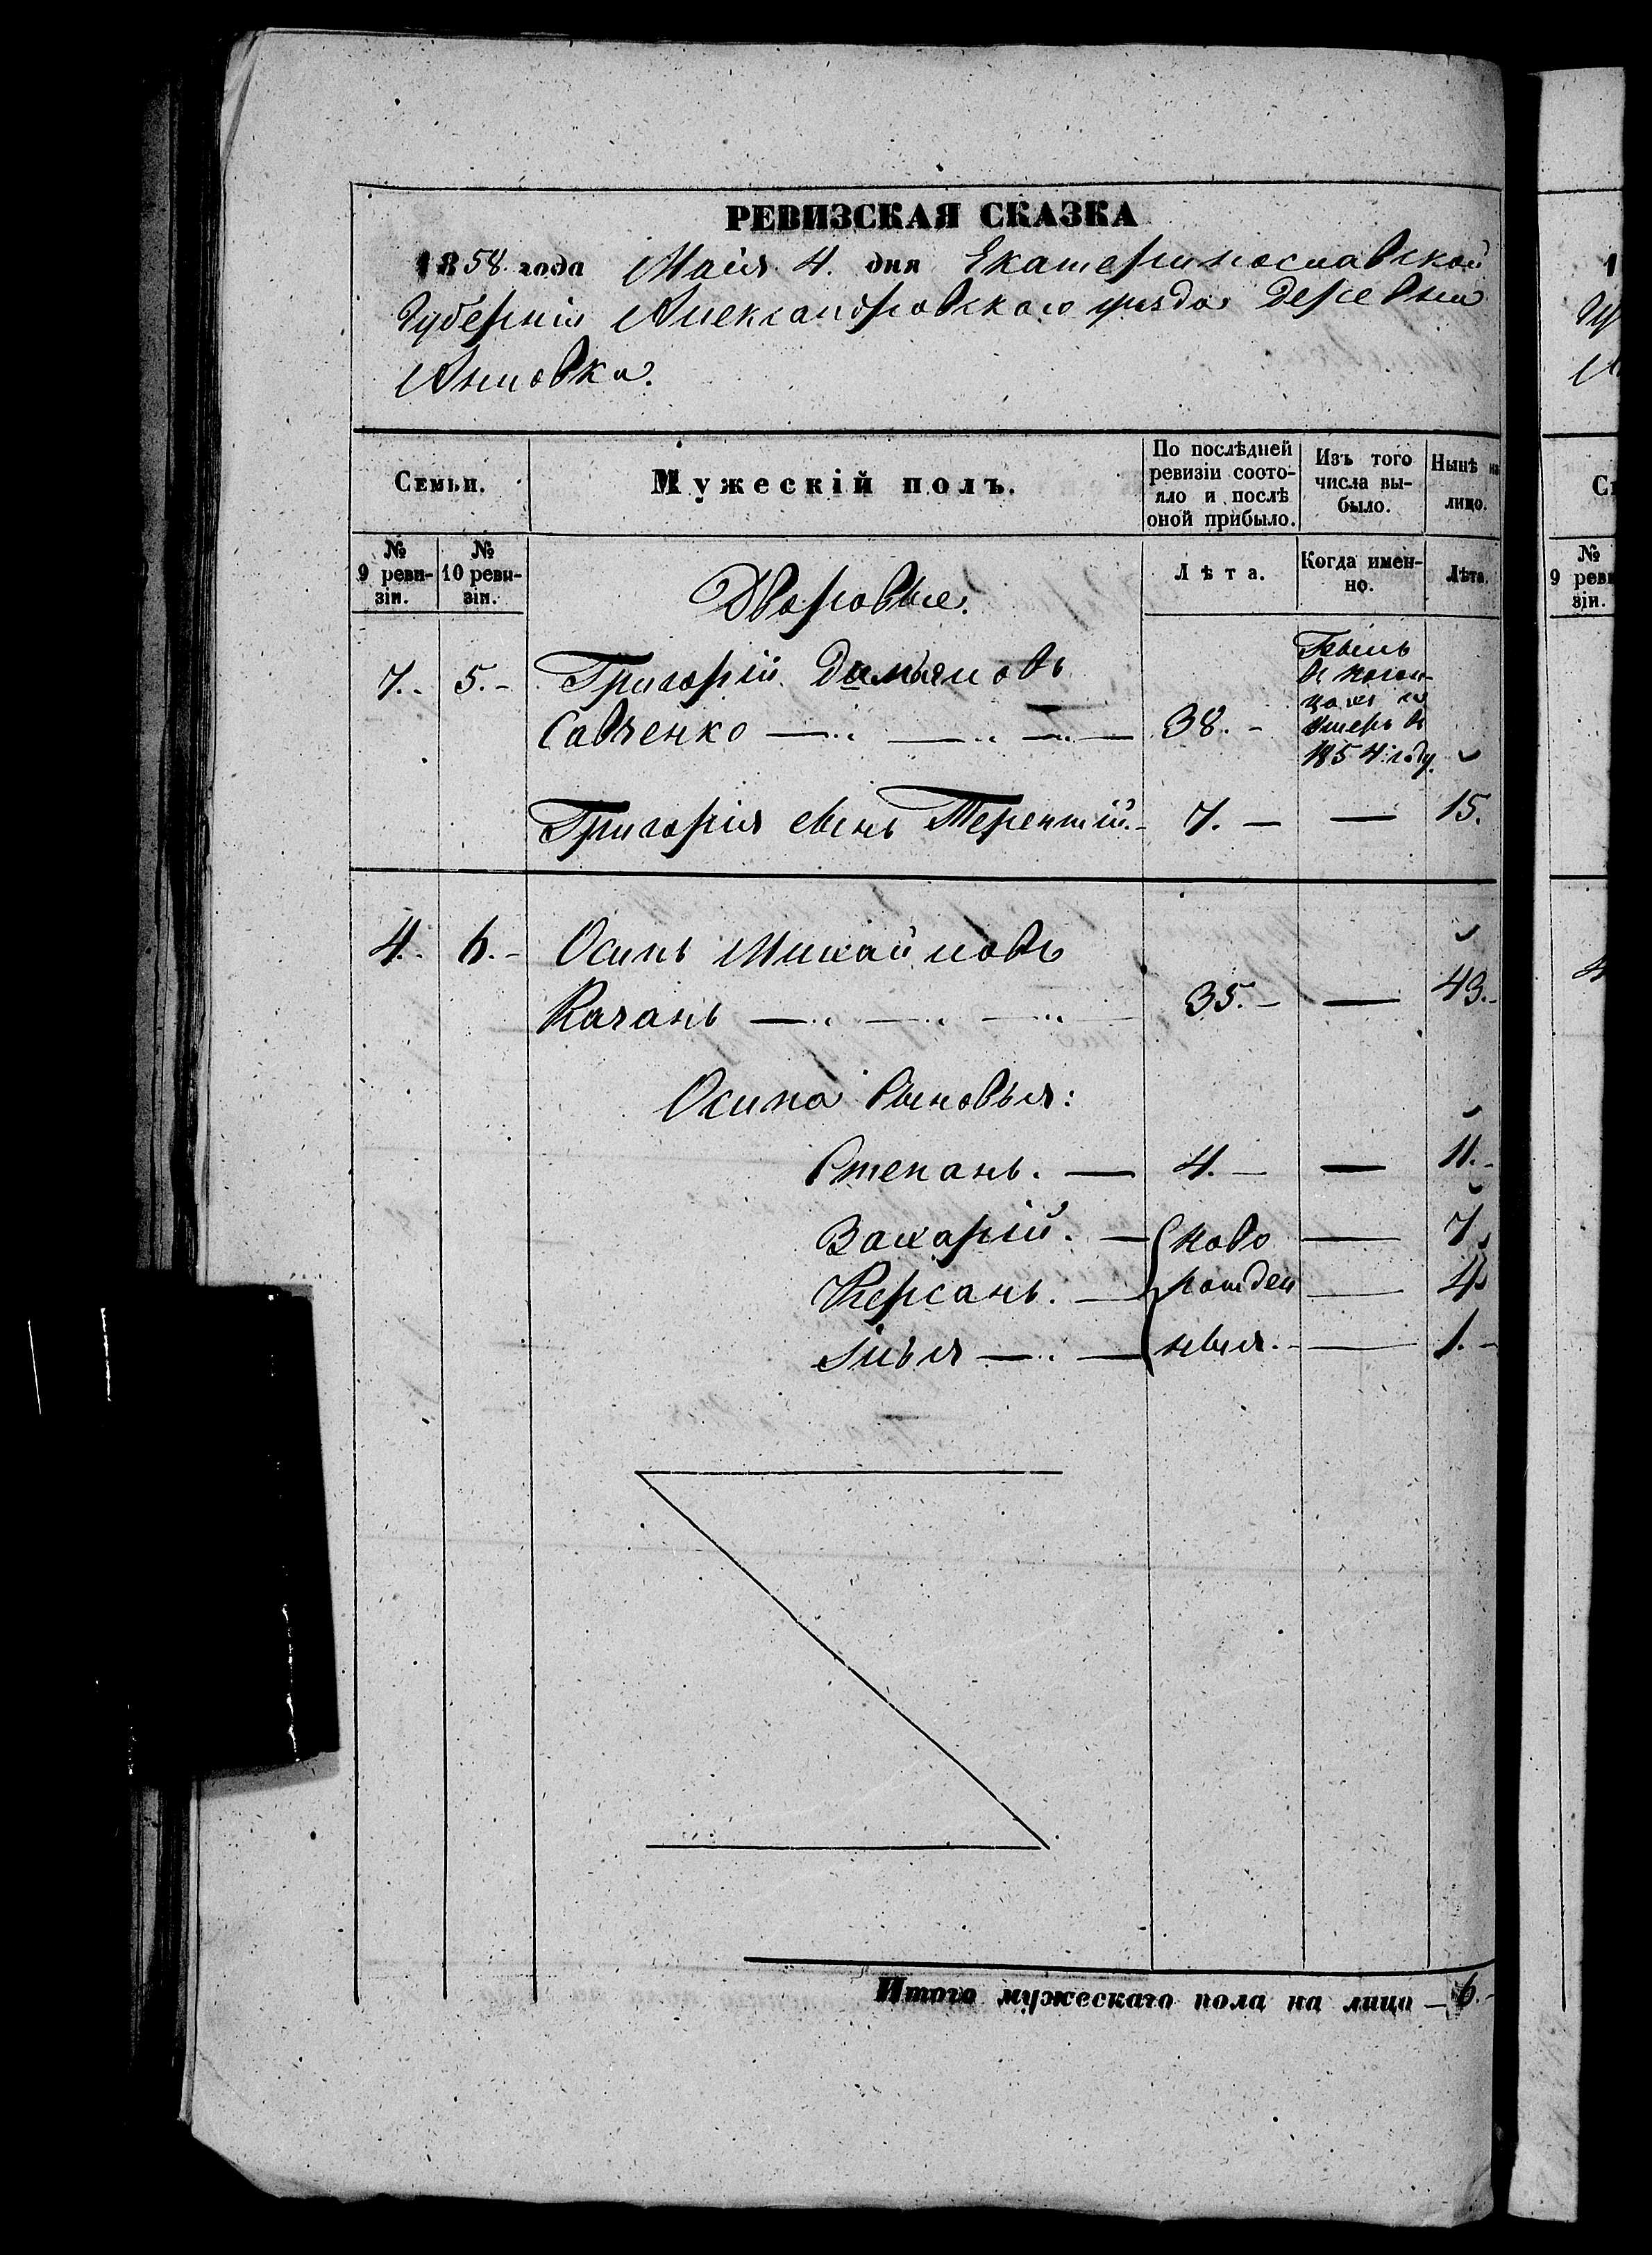 РЕВИЗСКАЯ СКАЗКА
1858 года Маія 4. дня Екатеринославской
Губерніи Александровскаго уѣзда деревни
Анновка.
Семьи.
Мужескій полъ.
По послѣдней ревизіи состояло и послѣ оной прибыло.
Изъ того числа выбыло.
Нынѣ на лицо.
№ 9 ревизіи.
№ 10 ревизіи.
Лѣта.
Когда именно.
Лѣта.
Дворовые.
7. 5. Григорій Дамьяновъ
Савченко 38. умеръ въ 1854 году.
Григорія сынъ Терентій. 7. — 15.
4. 6. Осипъ Михайловъ
Качанъ 35. — 43.
Осипа сыновья:
Степанъ. — 4. — 11.
Захарій. — ново — 7.
Керсанъ. — рожден — 4
Илья — ныя. — 1.
Итого мужескаго пола на лицо — 6.
1
№ 9 реви зіи.
4